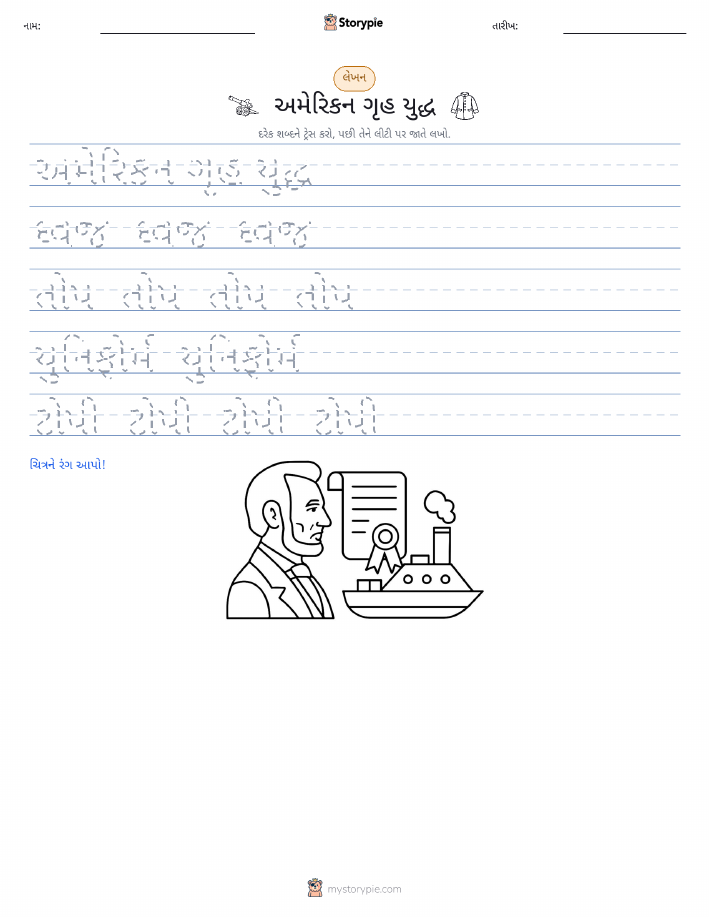 નામ:
Storypie
તારીખ:
લેખન
અમેરિકન ગૃહ યુદ્ધ
દરેક શબ્દને ટ્રેસ કરો, પછી તેને લીટી પર જાતે લખો.
અમેરિકન ગૃહ યુદ્ધ
ધ્વજ ધ્વજ ધ્વજ
તોપ તોપ તોપ તોપ
યુનિફોર્મ યુનિફોર્મ
ટોપી ટોપી ટોપી ટોપી
ચિત્રને રંગ આપો!
mystorypie.com